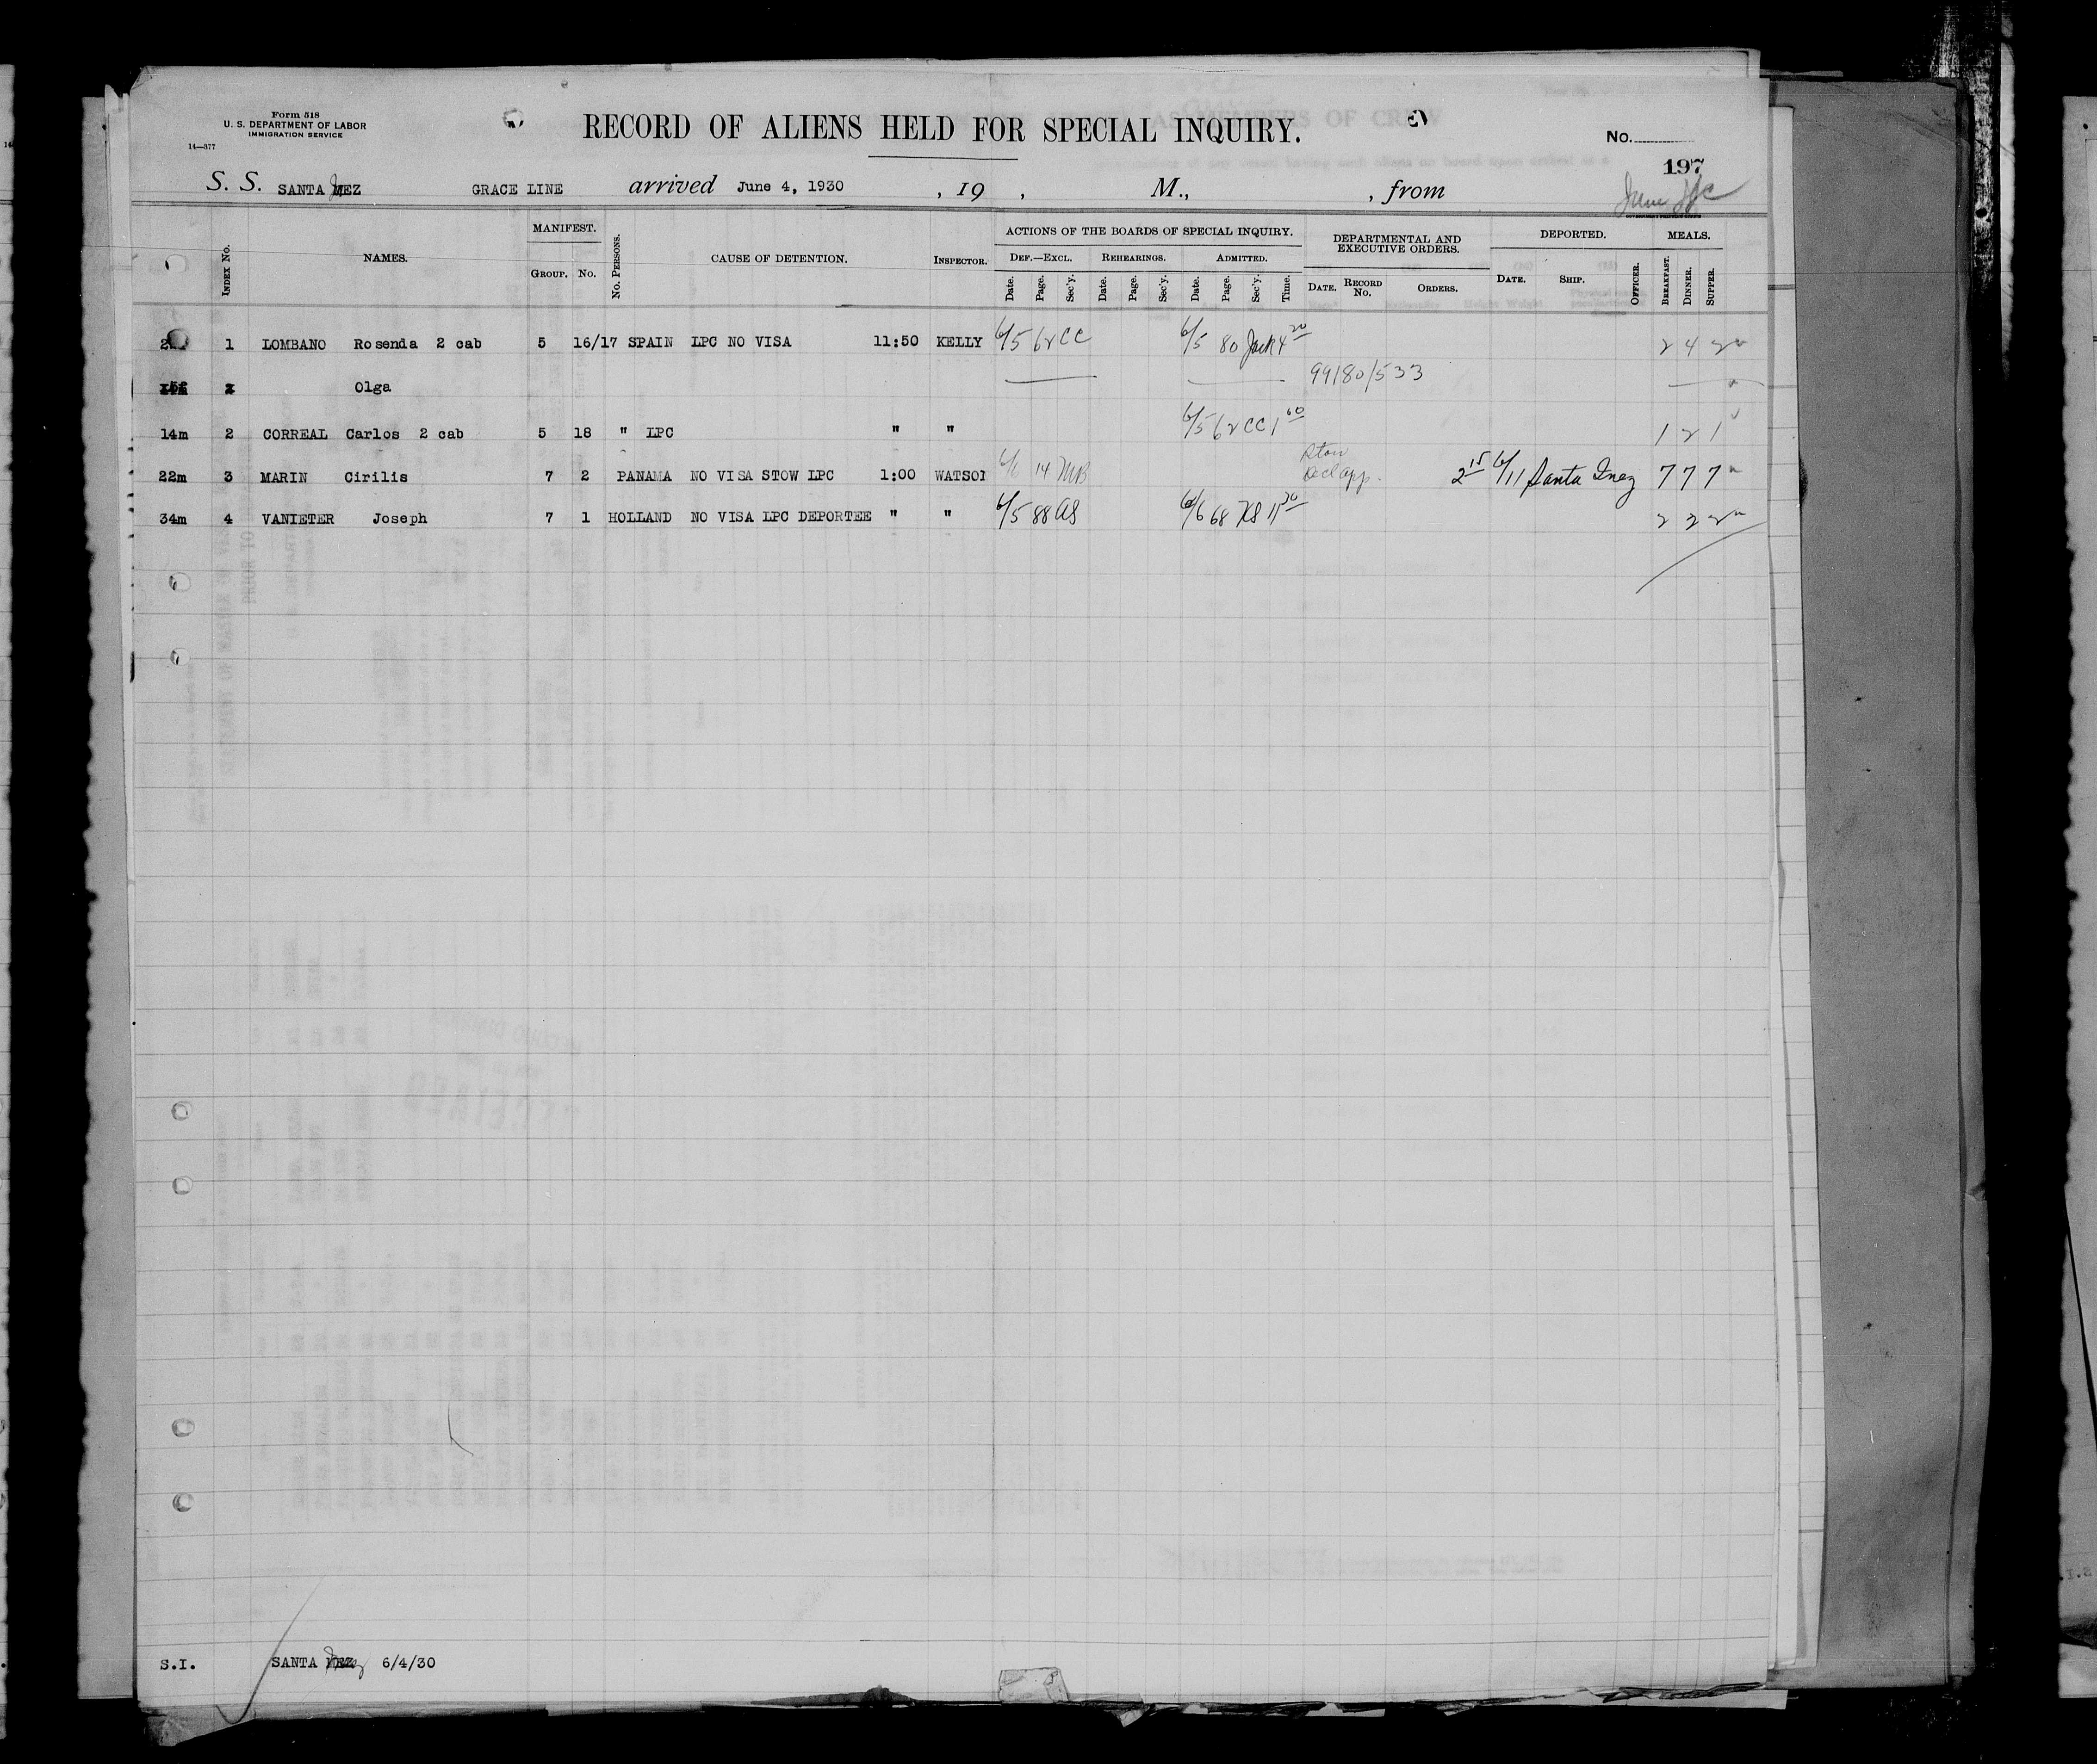 Form 518
U. S. DEPARTMENT OF LABOR
IMMIGRATION SERVICE
14—377
RECORD OF ALIENS HELD FOR SPECIAL INQUIRY.
No.
197
S. S. SANTA INEZ GRACE LINE arrived June 4, 1930 , 19 , M., , from
INDEX No. NAMES. MANIFEST. GROUP. No. No. PERSONS. CAUSE OF DETENTION. INSPECTOR. ACTIONS OF THE BOARDS OF SPECIAL INQUIRY. DEF.—EXCL. REHEARINGS. ADMITTED. DEPARTMENTAL AND EXECUTIVE ORDERS. DEPORTED. MEALS.
Date. Page. Sec'y. Date. Page. Sec'y. Date. Page. Sec'y. Time. DATE. RECORD No. ORDERS. DATE. SHIP. OFFICER. BREAKFAST. DINNER. SUPPER.
1 LOMBANO Rosenda 2 cab 5 16/17 SPAIN LPC NO VISA 11:50 KELLY 6/5 62 CC 6/5 80 Jack 4 20 2 4 2
Olga 99180/533
14m 2 CORREAL Carlos 2 cab 5 18 " LPC " " 6/5 62 CC 1 1 2 1
22m 3 MARIN Cirilis 7 2 PANAMA NO VISA STOW LPC 1:00 WATSON 6/6 14 MB Stow Decl app. 2 15 6/11 Santa Inez 7 7 7
34m 4 VANIETER Joseph 7 1 HOLLAND NO VISA LPC DEPORTEE " " 6/5 88 AS 6/6 68 11 30 2 2 2
S.I. SANTA Inez 6/4/30